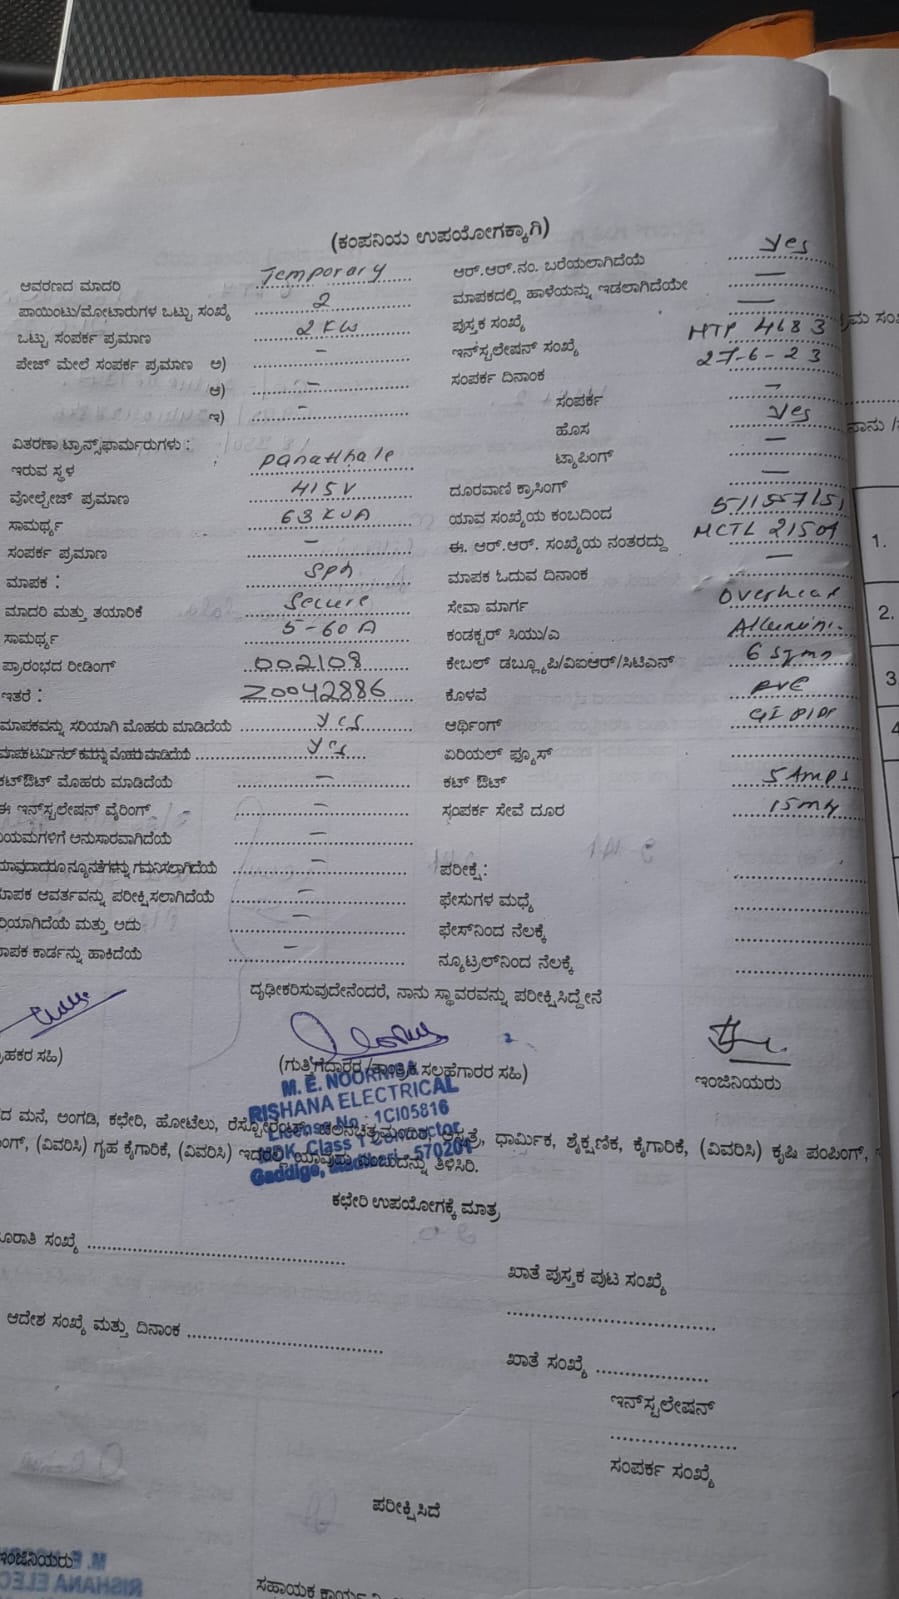 (ಕಂಪನಿಯ ಉಪಯೋಗಕ್ಕಾಗಿ)
ಆವರಣದ ಮಾದರಿ Temporary
ಪಾಯಿಂಟು/ಮೋಟಾರುಗಳ ಒಟ್ಟು ಸಂಖ್ಯೆ 2
ಒಟ್ಟು ಸಂಪರ್ಕ ಪ್ರಮಾಣ 2 KW
ಪೇಜ್ ಮೇಲೆ ಸಂಪರ್ಕ ಪ್ರಮಾಣ ಅ) –
ಆ) –
ಇ) –
ವಿತರಣಾ ಟ್ರಾನ್ಸ್‌ಫಾರ್ಮರುಗಳು :
ಇರುವ ಸ್ಥಳ Panatthale
ವೋಲ್ಟೇಜ್ ಪ್ರಮಾಣ 415 V
ಸಾಮರ್ಥ್ಯ 63 KVA
ಸಂಪರ್ಕ ಪ್ರಮಾಣ –
ಮಾಪಕ : SPh
ಮಾದರಿ ಮತ್ತು ತಯಾರಿಕೆ Secure
ಸಾಮರ್ಥ್ಯ 5-60 A
ಪ್ರಾರಂಭದ ರೀಡಿಂಗ್ 002108
ಇತರೆ : Z0042886
ಮಾಪಕವನ್ನು ಸರಿಯಾಗಿ ಮೊಹರು ಮಾಡಿದೆಯೆ Yes
ಮಾಪಕ ಟರ್ಮಿನಲ್ ಕವನ್ನು ಮೊಹರು ಮಾಡಿದೆಯೆ Yes
ಕಟ್‌ಔಟ್ ಮೊಹರು ಮಾಡಿದೆಯೆ –
ಈ ಇನ್‌ಸ್ಟಲೇಷನ್ ವೈರಿಂಗ್ –
ನಿಯಮಗಳಿಗೆ ಅನುಸಾರವಾಗಿದೆಯೆ –
ಯಾವುದಾದರೂ ನ್ಯೂನತೆಗಳನ್ನು ಗಮನಿಸಲಾಗಿದೆಯೆ –
ಮಾಪಕ ಆವರ್ತವನ್ನು ಪರೀಕ್ಷಿಸಲಾಗಿದೆಯೆ –
ಸರಿಯಾಗಿದೆಯೆ ಮತ್ತು ಅದು –
ಮಾಪಕ ಕಾರ್ಡನ್ನು ಹಾಕಿದೆಯೆ –
ಆರ್.ಆರ್.ನಂ. ಬರೆಯಲಾಗಿದೆಯೆ Yes
ಮಾಪಕದಲ್ಲಿ ಹಾಳೆಯನ್ನು ಇಡಲಾಗಿದೆಯೇ —
ಪುಸ್ತಕ ಸಂಖ್ಯೆ —
ಇನ್‌ಸ್ಟಲೇಷನ್ ಸಂಖ್ಯೆ MTP 4683
ಸಂಪರ್ಕ ದಿನಾಂಕ 27-6-23
ಸಂಪರ್ಕ –
ಹೊಸ Yes
ಟ್ಯಾಪಿಂಗ್ —
ದೂರವಾಣಿ ಕ್ರಾಸಿಂಗ್ —
ಯಾವ ಸಂಖ್ಯೆಯ ಕಂಬದಿಂದ
ಈ. ಆರ್.ಆರ್. ಸಂಖ್ಯೆಯ ನಂತರದ್ದು MCTL 21504
ಮಾಪಕ ಓದುವ ದಿನಾಂಕ —
ಸೇವಾ ಮಾರ್ಗ Overhead
ಕಂಡಕ್ಟರ್ ಸಿಯು/ಎ
ಕೇಬಲ್ ಡಬ್ಲ್ಯೂಪಿ/ವಿಐಆರ್/ಸಿಟಿಎಸ್ 6 Sqmm
ಕೊಳವೆ PVC
ಆರ್ಥಿಂಗ್ GI PIPE
ಏರಿಯಲ್ ಫ್ಯೂಸ್
ಕಟ್ ಔಟ್ 5 Amps
ಸಂಪರ್ಕ ಸೇವೆ ದೂರ
ಪರೀಕ್ಷೆ:
ಫೇಸುಗಳ ಮಧ್ಯೆ
ಫೇಸ್‌ನಿಂದ ನೆಲಕ್ಕೆ
ನ್ಯೂಟ್ರಲ್‌ನಿಂದ ನೆಲಕ್ಕೆ
ದೃಢೀಕರಿಸುವುದೇನೆಂದರೆ, ನಾನು ಸ್ಥಾವರವನ್ನು ಪರೀಕ್ಷಿಸಿದ್ದೇನೆ
ಗ್ರಾಹಕರ ಸಹಿ)
(ಗುತ್ತಿಗೆದಾರರ /ತಾಂತ್ರಿಕ ಸಲಹೆಗಾರರ ಸಹಿ)
ಇಂಜಿನಿಯರು
M. E. NOOR
RISHANA ELECTRICAL
License No : 1CI05816
Class 1 Contractor
Gaddige, - 570201
ದ ಮನೆ, ಅಂಗಡಿ, ಕಛೇರಿ, ಹೋಟೆಲು, ರೆಸ್ಟೋರೆಂಟ್, ಚಲನಚಿತ್ರಮಂದಿರ, ಆಸ್ಪತ್ರೆ, ಧಾರ್ಮಿಕ, ಶೈಕ್ಷಣಿಕ, ಕೈಗಾರಿಕೆ, (ವಿವರಿಸಿ) ಕೃಷಿ ಪಂಪಿಂಗ್,
ಂಗ್, (ವಿವರಿಸಿ) ಗೃಹ ಕೈಗಾರಿಕೆ, (ವಿವರಿಸಿ) ಇದರಲ್ಲಿ ಯಾವುದು ಎಂಬುದನ್ನು ತಿಳಿಸಿರಿ.
ಕಛೇರಿ ಉಪಯೋಗಕ್ಕೆ ಮಾತ್ರ
ಸಂಖ್ಯೆ
ಖಾತೆ ಪುಸ್ತಕ ಪುಟ ಸಂಖ್ಯೆ
ಆದೇಶ ಸಂಖ್ಯೆ ಮತ್ತು ದಿನಾಂಕ
ಖಾತೆ ಸಂಖ್ಯೆ
ಇನ್‌ಸ್ಟಲೇಷನ್
ಸಂಪರ್ಕ ಸಂಖ್ಯೆ
ಪರೀಕ್ಷಿಸಿದೆ
ಇಂಜಿನಿಯರು
ಸಹಾಯಕ
1.
2.
3.